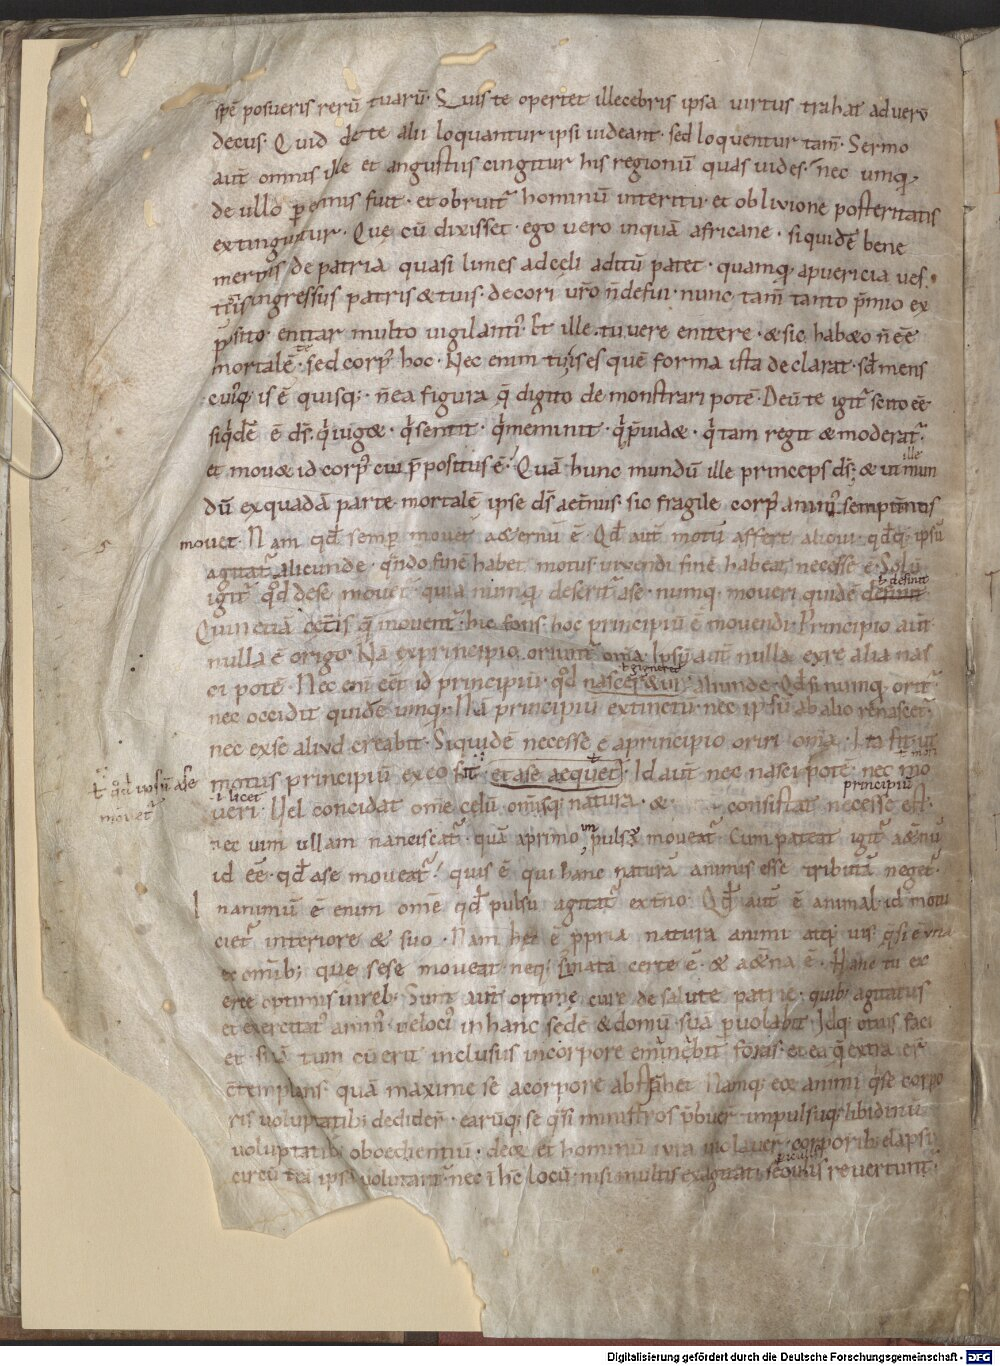 spē posueris rerū tuarū. Suis te oportet illecebris ipsa uirtus trahat aduerū
decus. Quid de te alii loquantur ipsi uideant. sed loquentur tam̄. Sermo
aut̄ omnis ille et angustus cingitur his regionū quas uides. nec umq;
de ullo p̄ennis fuit. et obruit᷑ hominū interitu et obliuione posteritatis
extinguitur. Quę cū dixisset. ego uero inquā africane. siquidē bene
meritis de patria quasi limes adcęli aditū patet. quamq; apuericia ues
tigiis ingressus patris & tuis. decori ur̄o n̄ defui. nunc tam̄ tanto p̄mio ex
posito. enitar multo uigilanti᷒. Et ille. tu uere enitere. & sic habeto n̄ ēē
mortalē te. sed corp᷒ hoc. Nec enim tu is es quē forma ista declarat. sed mens
cui᷒q; is ē quisq;. n̄ ea figura q̄ digito demonstrari potē. Deū te igit᷑ scito ēē
siq̇dē ē ds̄. q̇ uig&. q̇ sentit. q̇ meminit. q̇ p̄uid&. q̇ tam regit & moderat᷑.
et mou& id corp᷒ cui p̄positus ē. Quā hunc mundū ille princeps ds̄. & ut ille mun
dū exquadā parte mortalē ipse ds̄ aet̄nus. sic fragile corp᷒ anim᷒ sempit̄nus
mouet. Nam qd̄ semp̄ mouet᷑ aeternū ē. Qd̄ aut̄ motū affert alicui. qd̄q; ipsū
agitat᷑ alicunde. q̄ndo finē habet motus. uiuendi finē habeat necesse ē. Solū
ł definit
igit᷑ qd̄ dese mouet. quia numq; deserit᷑ ase. numq; moueri quidē desinit
Quin etiā cęt̄is q̄ mouent᷑. hic fons. hoc principiū ē mouendi. Principio aut̄
nulla ē origo. Nā exprincipio oriunt᷑ om̄a. Ipsū aut̄ nulla exre alia nas
ł gigneret᷑
ci potē. Nec eni eēt id principiū. qd̄ nasceret᷑ aliunde. Qd̄ si numq; orit᷑
nec occidit quidē umq;. Nā principiū extinctū. nec ipsū ab alio renascet᷑.
nec exse aliud creabit. Siquidē necesse ē aprincipio oriri om̄a. Ita fit ut
motus principiū ex eo sit. et ase mouet᷑. Id aut̄ nec nasci potē. nec mo
ł qd̄ ipsū ase
mouet᷑
principiū
ueri. Vel concidat om̄e cęlū om̄isq; natura. & consistat necesse est.
nec uim ullam nanciscat᷑. quā aprimo inpulsa moueat᷑. Cum pateat igit᷑ aet̄nū
id ēē. qd̄ ase moueat᷑. quis ē qui hanc naturā animis esse tributā neget᷑.
Inanimū ē enim om̄e qd̄ pulsu agitat᷑ ext̄no. Qd̄ aut̄ ē animal. id motu
ciet᷑ interiore & suo. Nam hęc ē p̄pria natura animi atq; uis. q̄ si ē una
ex om̄ib; quę sese moueat. neq; nata certe ē. & aet̄na ē. Hanc tu ex
erce optimis inreb;. Sunt aut̄ optimę curę de salute patrię. quib; agitatus
et exercitat᷒ anim᷒. uelocius inhanc sedē & domū suā puolabit. Idq; otius faci
et. si iā tum cū erit inclusus incorpore eminebit foras. et ea q̄ extra er̄
c̄templans. quā maxime se acorpore abstrahet. Namq; eorū animi q̇ se corpo
ris uoluptatib; dedider̄. earūq; se q̄si ministros p̄buer̄. impulsuq; libidinū
uoluptatib; oboedientiū. deorū et hominū iura uiolauer̄. corporib; elapsi
circū trā ipsā uolutant᷑. nec i hc̄ locū nisi multis exagitati sęculis reuertunt᷑.